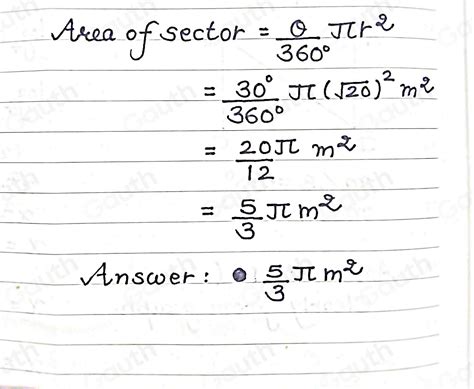 Area of sector = θ/360° πr²
= 30°/360° π(√20)² m²
= 20π/12 m²
= 5/3 π m²
Answer: 5/3 π m²